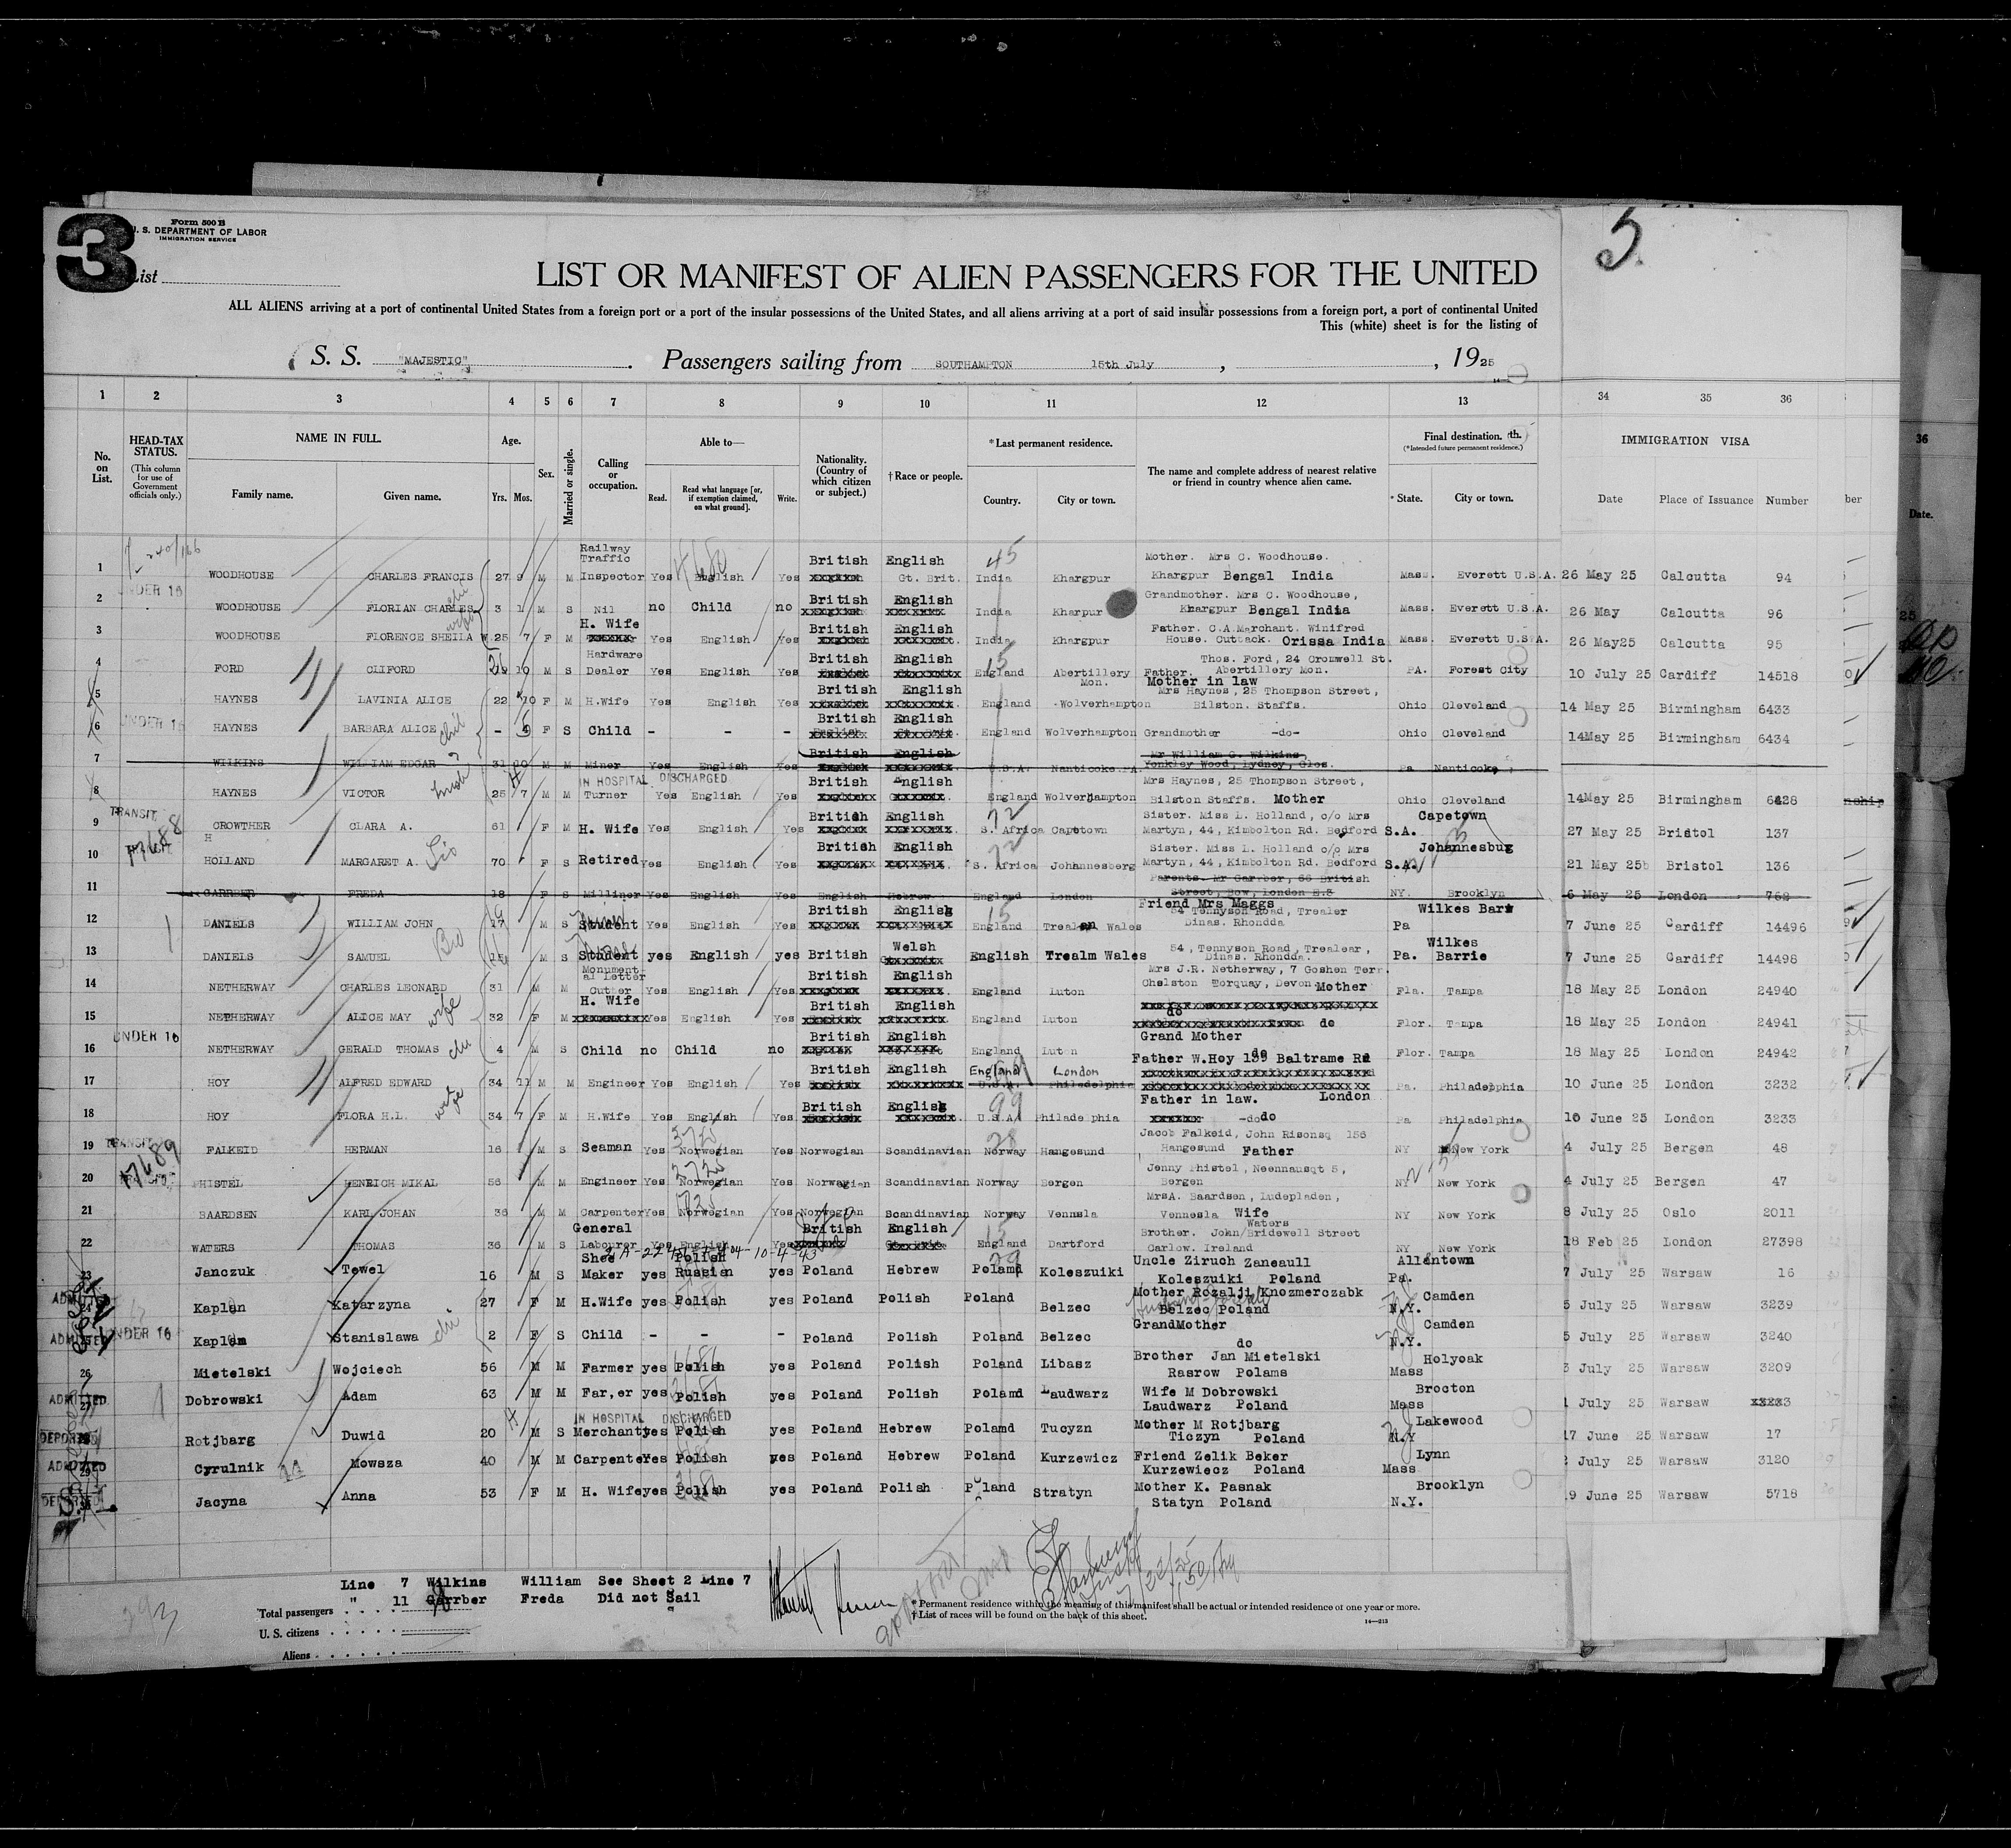 3
Form 500 B
U. S. DEPARTMENT OF LABOR
IMMIGRATION SERVICE
List
5
LIST OR MANIFEST OF ALIEN PASSENGERS FOR THE UNITED
ALL ALIENS arriving at a port of continental United States from a foreign port or a port of the insular possessions of the United States, and all aliens arriving at a port of said insular possessions from a foreign port, a port of continental United
This (white) sheet is for the listing of
S. S. "MAJESTIC". Passengers sailing from SOUTHAMPTON 15th July, , 1925
1 2 3 4 5 6 7 8 9 10 11 12 13 34 35 36
No. on List. HEAD-TAX STATUS. (This column for use of Government officials only.) NAME IN FULL. Family name. Given name. Age. Yrs. Mos. Sex. Married or single. Calling or occupation. Able to— Read. Read what language [or, if exemption claimed, on what ground]. Write. Nationality. (Country of which citizen or subject.) † Race or people. * Last permanent residence. Country. City or town. The name and complete address of nearest relative or friend in country whence alien came. Final destination. (* Intended future permanent residence.) * State. City or town. IMMIGRATION VISA Date Place of Issuance Number
36
Date.
1 WOODHOUSE CHARLES FRANCIS 27 9 M M Railway Traffic Inspector Yes English Yes British English Gt. Brit. India Khargpur Mother. Mrs C. Woodhouse. Khargpur Bengal India Mass. Everett U.S.A. 26 May 25 Calcutta 94
2 UNDER 16 WOODHOUSE FLORIAN CHARLES 3 1 M S Nil no Child no British English India Kharpur Grandmother. Mrs C. Woodhouse, Khargpur Bengal India Mass. Everett U.S.A. 26 May Calcutta 96
3 WOODHOUSE FLORENCE SHEILA W. 25 7 F M H. Wife Yes English Yes British English India Khargpur Father. C.A.Marchant. Winifred House. Cuttack. Orissa India Mass. Everett U.S.A. 26 May25 Calcutta 95
4 FORD CLIFORD 19 10 M S Hardware Dealer Yes English Yes British English England Abertillery Mon. Thos. Ford, 24 Cromwell St. Father. Abertillery Mon. PA. Forest City 10 July 25 Cardiff 14518
5 HAYNES LAVINIA ALICE 22 10 F M H.Wife Yes English Yes British English England Wolverhampton Mother in law Mrs Haynes, 25 Thompson Street, Bilston. Staffs. Ohio Cleveland 14 May 25 Birmingham 6433
6 UNDER 16 HAYNES BARBARA ALICE - F S Child - - - British English England Wolverhampton Grandmother -do- Ohio Cleveland 14May 25 Birmingham 6434
7 WILKINS WILLIAM EDGAR 31 10 M M Miner Yes English Yes British English U.S.A. Nanticoke PA. Mr William G. Wilkins, Yonkley Wood, Lydney, Glos. Pa Nanticoke
8 HAYNES VICTOR 25 7 M M IN HOSPITAL DISCHARGED Turner Yes English Yes British English England Wolverhampton Mrs Haynes, 25 Thompson Street, Bilston Staffs. Mother Ohio Cleveland 14May 25 Birmingham 6428
9 TRANSIT CROWTHER CLARA A. 61 F M H. Wife Yes English Yes British English S. Africa Capetown Sister. Miss L. Holland, c/o Mrs Martyn, 44, Kimbolton Rd. Bedford S.A. Capetown 27 May 25 Bristol 137
10 HOLLAND MARGARET A. 70 F S Retired Yes English Yes British English S. Africa Johannesberg Sister. Miss L. Holland c/o Mrs Martyn, 44, Kimbolton Rd. Bedford S.A. Johannesbug 21 May 25 Bristol 136
11 GARRBER FREDA 18 F S Milliner Yes English Yes English Hebrew England London Parents. Mr Garrber, 66 British Street, Bow, London E.3 NY. Brooklyn 6 May 25 London 762
12 DANIELS WILLIAM JOHN 17 M S Student Yes English Yes British English England Trealan Wales Friend Mrs Maggs 54 Tennyson Road, Trealer Dinas. Rhondda Pa Wilkes Barr 7 June 25 Cardiff 14496
13 DANIELS SAMUEL M S Student yes English yes British Welsh English Trealm Wales 54, Tennyson Road, Trealear, Dinas. Rhondda. Pa. Wilkes Barrie 7 June 25 Cardiff 14498
14 NETHERWAY CHARLES LEONARD 31 M M Monumental Letter Cutter Yes English Yes British English England Luton Mrs J.R. Netherway, 7 Goshen Terr. Chelston Torquay, Devon. Mother Fla. Tampa 18 May 25 London 24940
15 NETHERWAY ALICE MAY wife 32 F M H. Wife Yes English Yes British English England Luton do do Flor. Tampa 18 May 25 London 24941
16 UNDER 16 NETHERWAY GERALD THOMAS 4 M S Child no Child no British English England Luton Grand Mother do Flor. Tampa 18 May 25 London 24942
17 HOY ALFRED EDWARD 34 11 M M Engineer Yes English Yes British English England London U.S.A. Philadelphia Father W.Hoy 199 Baltrame Rd Pa. Philadelphia 10 June 25 London 3232
18 HOY FLORA H.L. wife 34 7 F M H.Wife Yes English Yes British English U.S.A. Philadelphia Father in law. London -dodo Pa Philadelphia 16 June 25 London 3233
19 TRANSIT FALKEID HERMAN 16 M S Seaman Yes Norwegian Yes Norwegian Scandinavian Norway Hangesund Jacob Falkeid, John Risonsq 156 Hangesund Father NY New York 4 July 25 Bergen 48
20 PHISTEL HENRICH MIKAL 56 M M Engineer Yes Norwegian Yes Norwegian Scandinavian Norway Bergen Jenny Phistel, Neennausqt 5, Bergen NY New York 4 July 25 Bergen 47
21 BAARDSEN KARL JOHAN 36 M M Carpenter Yes Norwegian Yes Norwegian Scandinavian Norway Vennsla MrsA. Baardsen, Ludepladen, Vennesla Wife NY New York 8 July 25 Oslo 2011
22 WATERS THOMAS 36 M S General Labourer Yes English Yes British English England Dartford Brother. John/Bridewell Street Waters Carlow. Ireland NY New York 18 Feb 25 London 27398
23 Janczuk Tewel 16 M S Shee Maker yes Polish Russian yes Poland Hebrew Poland Koleszuiki Uncle Ziruch Zaneaull Koleszuiki Poland Pa. Allentown 7 July 25 Warsaw 16
ADMITTED 24 Kaplan Katarzyna 27 F M H.Wife yes Polish yes Poland Polish Poland Belzec Mother Rozalji Knozmerczabk Belzec Poland N.Y. Camden 5 July 25 Warsaw 3239
ADMITTED UNDER 16 Kaplan Stanislawa 2 F S Child - - - Poland Polish Poland Belzec GrandMother do N.Y. Camden 5 July 25 Warsaw 3240
26 Mietelski Wojciech 56 M M Farmer yes Polish yes Poland Polish Poland Libasz Brother Jan Mietelski Rasrow Polams Mass Holyoak 3 July 25 Warsaw 3209
ADMITTED 27 Dobrowski Adam 63 M M Far,er yes Polish yes Poland Polish Poland Laudwarz Wife M Dobrowski Laudwarz Poland Mass Brocton 1 July 25 Warsaw
DEPORTED Rotjbarg Duwid 20 M S IN HOSPITAL DISCHARGED Merchant yes Polish yes Poland Hebrew Poland Tucyzn Mother M Rotjbarg Ticzyn Poland N.Y Lakewood 17 June 25 Warsaw 17
ADMITTED 29 Cyrulnik Mowsza 40 M M Carpenter Yes Polish yes Poland Hebrew Poland Kurzewicz Friend Zelik Beker Kurzewiecz Poland Mass Lynn 2 July 25 Warsaw 3120
DEPORTED Jacyna Anna 53 F M H. Wife yes Polish yes Poland Polish Poland Stratyn Mother K. Pasnak Statyn Poland N.Y. Brooklyn 19 June 25 Warsaw 5718
Line 7 Wilkins William See Sheet 2 Line 7
" 11 Garrber Freda Did not Sail
Total passengers
U. S. citizens
Aliens
* Permanent residence within the meaning of this manifest shall be actual or intended residence of one year or more.
† List of races will be found on the back of this sheet.
14—213